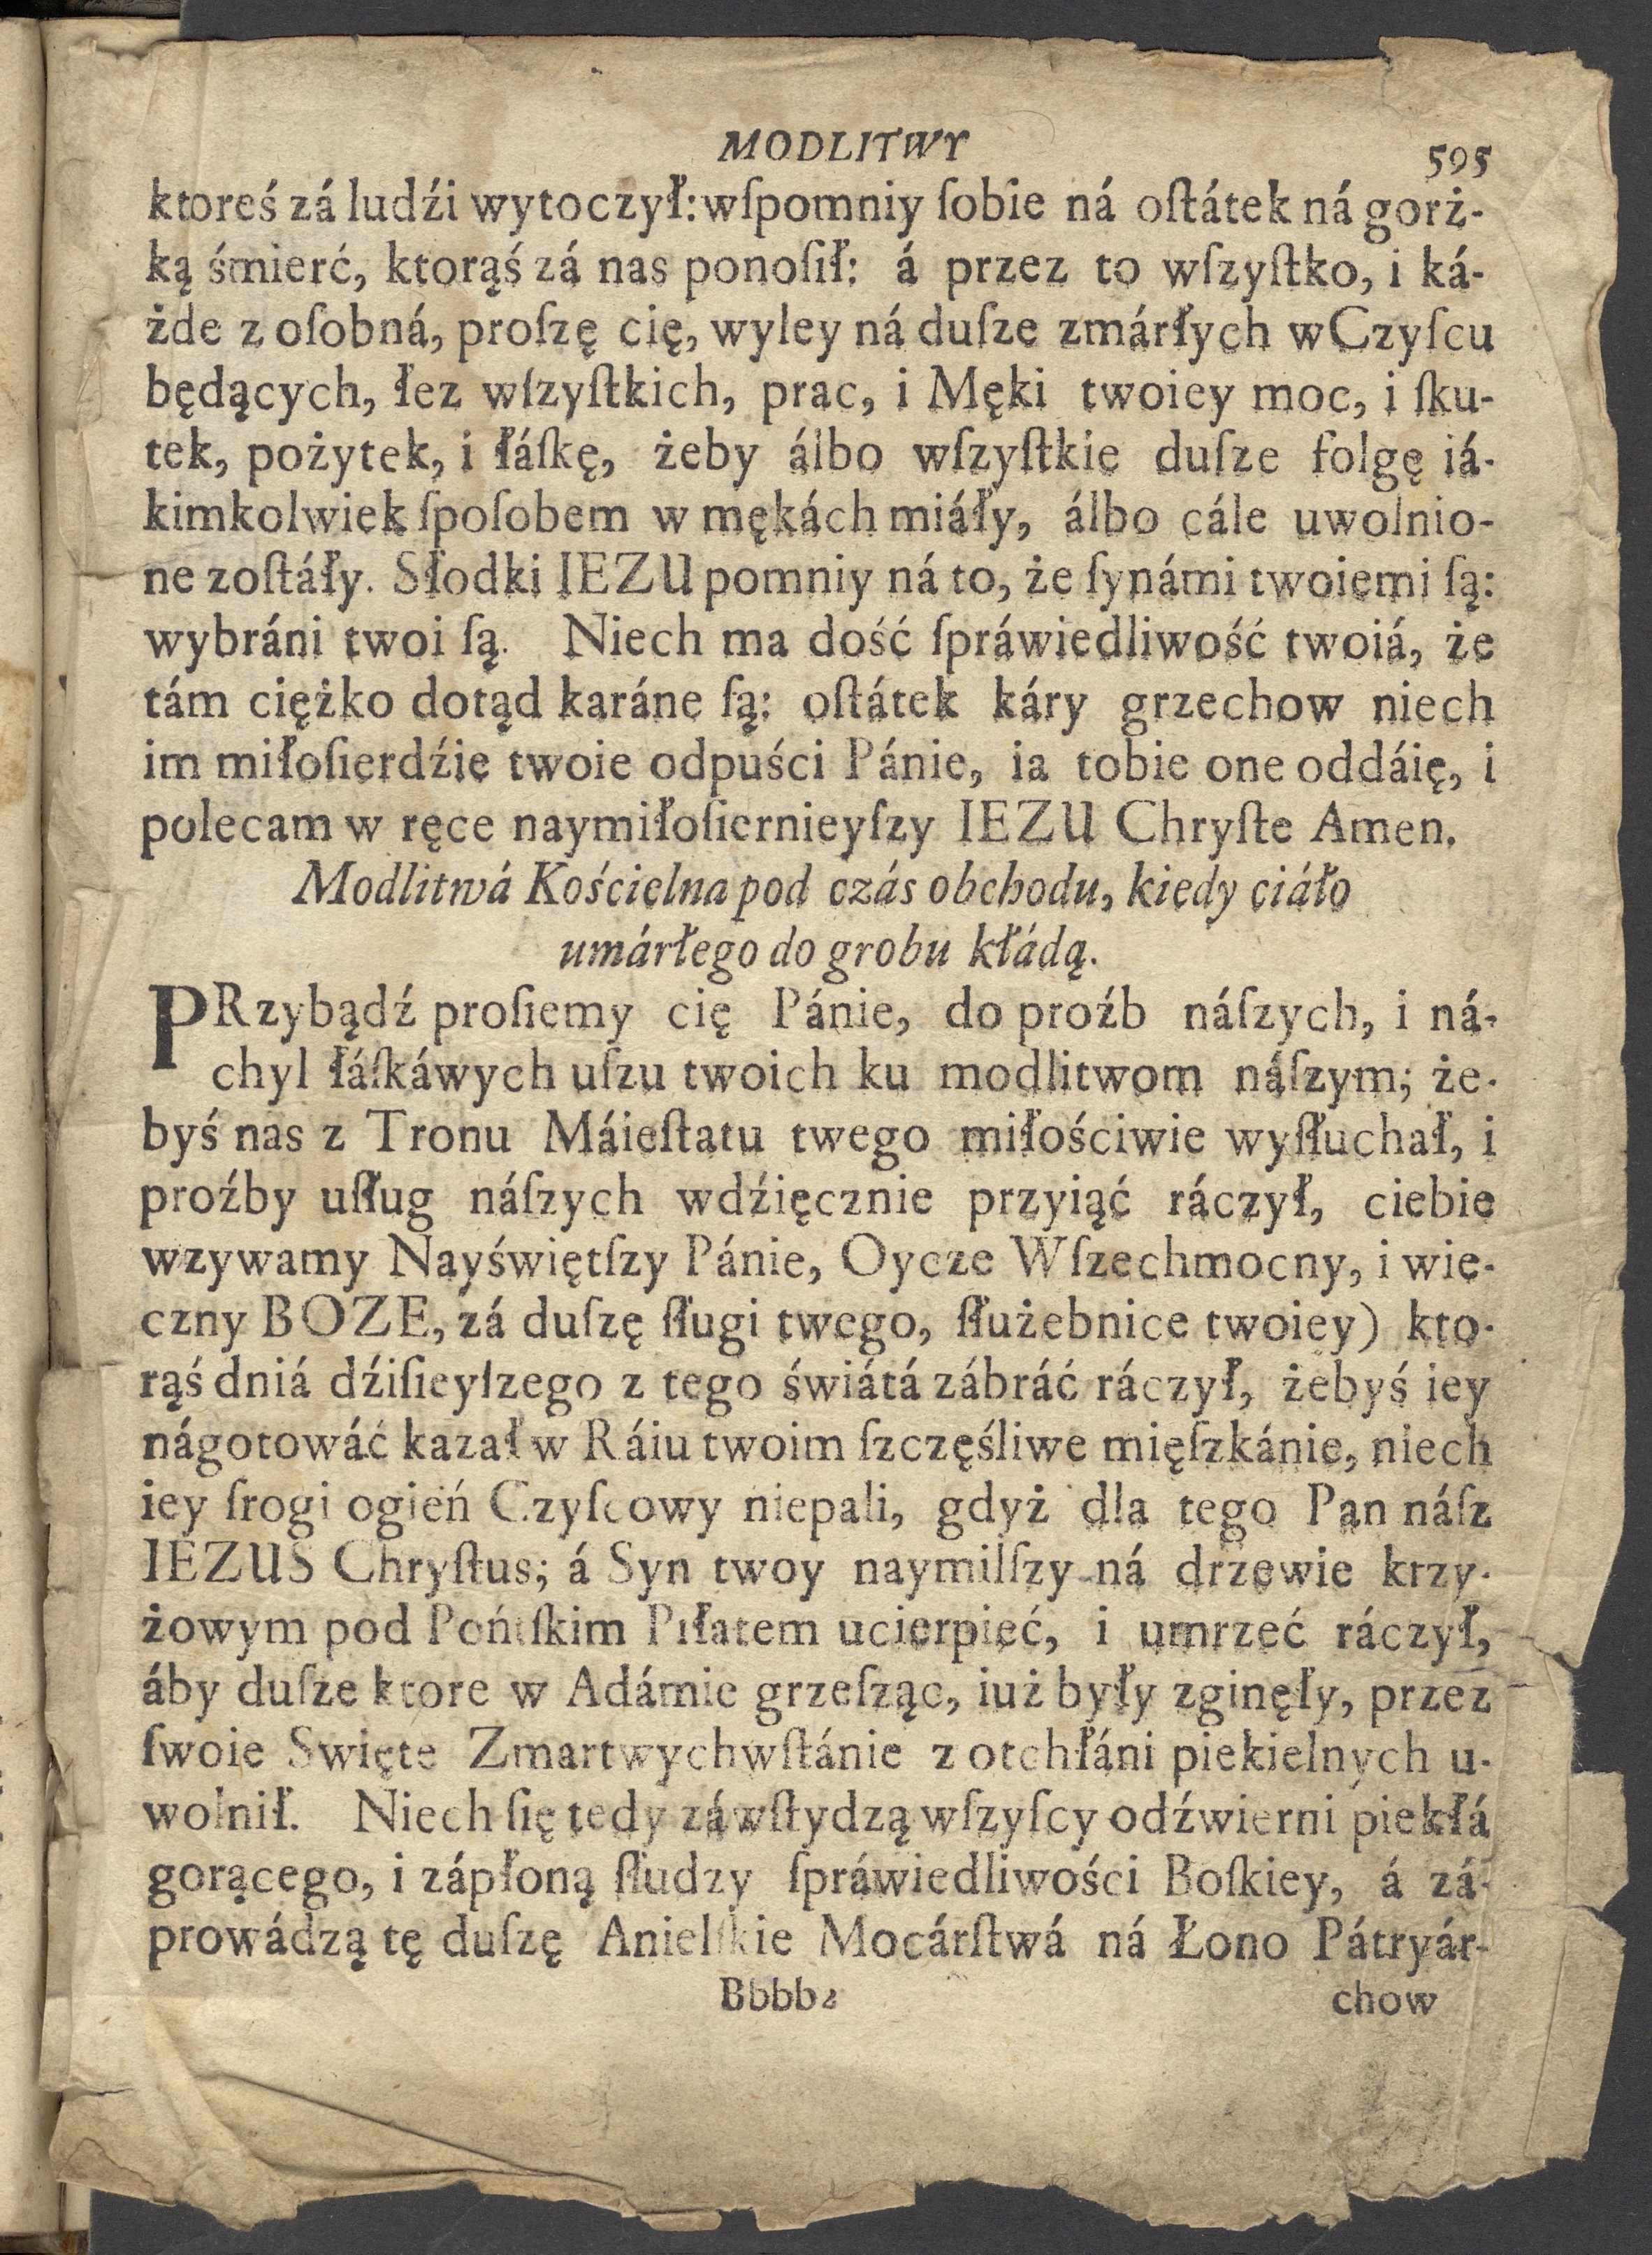 MODLITWY 595
ktoreś zá ludźi wytoczył: wſpomniy ſobie ná oſtátek ná gorż-
ką śmierć, ktorąś zá nas ponoſił: á przez to wſzyſtko, i ká-
żde z oſobná, proſzę cię, wyley ná duſze zmárłych w Czyſcu
będących, łez wſzyſtkich, prac, i Męki twoiey moc, i ſku-
tek, pożytek, i łáſkę, żeby álbo wſzyſtkie duſze folgę iá-
kimkolwiek ſpoſobem w mękách miáły, álbo cále uwolnio-
ne zoſtáły. Słodki IEZU pomniy ná to, że ſynámi twoiemi ſą:
wybráni twoi ſą. Niech ma dość ſpráwiedliwość twoiá, że
tám ciężko dotąd karáne ſą: oſtátek káry grzechow niech
im miłoſierdźie twoie odpuści Pánie, ia tobie one oddáię, i
polecam w ręce naymiłoſiernieyſzy IEZU Chryſte Amen.
Modlitwá Kościelna pod czás obchodu, kiedy ciáło
umárłego do grobu kłádą.
PRzybądź proſiemy cię Pánie, do proźb náſzych, i ná-
chyl łáſkáwych uſzu twoich ku modlitwom náſzym; że-
byś nas z Tronu Máieſtatu twego miłościwie wyſłuchał, i
proźby uſług náſzych wdźięcznie przyiąć ráczył, ciebie
wzywamy Nayświętſzy Pánie, Oycze Wſzechmocny, i wie-
czny BOZE, zá duſzę ſługi twego, ſłużebnice twoiey) kto-
rąś dniá dźiſieyſzego z tego świátá zábráć ráczył, żebyś iey
nágotowáć kazał w Ráiu twoim ſzczęśliwe mięſzkánie, niech
iey ſrogi ogień Czyſcowy niepali, gdyż dla tego Pan náſz
IEZUS Chryſtus; á Syn twoy naymilſzy ná drzewie krzy-
żowym pod Pońtſkim Piłatem ucierpieć, i umrzeć ráczył,
áby duſze ktore w Adámie grzeſząc, iuż były zginęły, przez
ſwoie Swięte Zmartwychwſtánie z otchłáni piekielnych u-
wolnił. Niech ſię tedy záwſtydzą wſzyſcy odźwierni piekłá
gorącego, i zápłoną ſłudzy ſpráwiedliwości Boſkiey, á zá-
prowádzą tę duſzę Anielſkie Mocárſtwá ná Łono Pátryár-
Bbbb2 chow